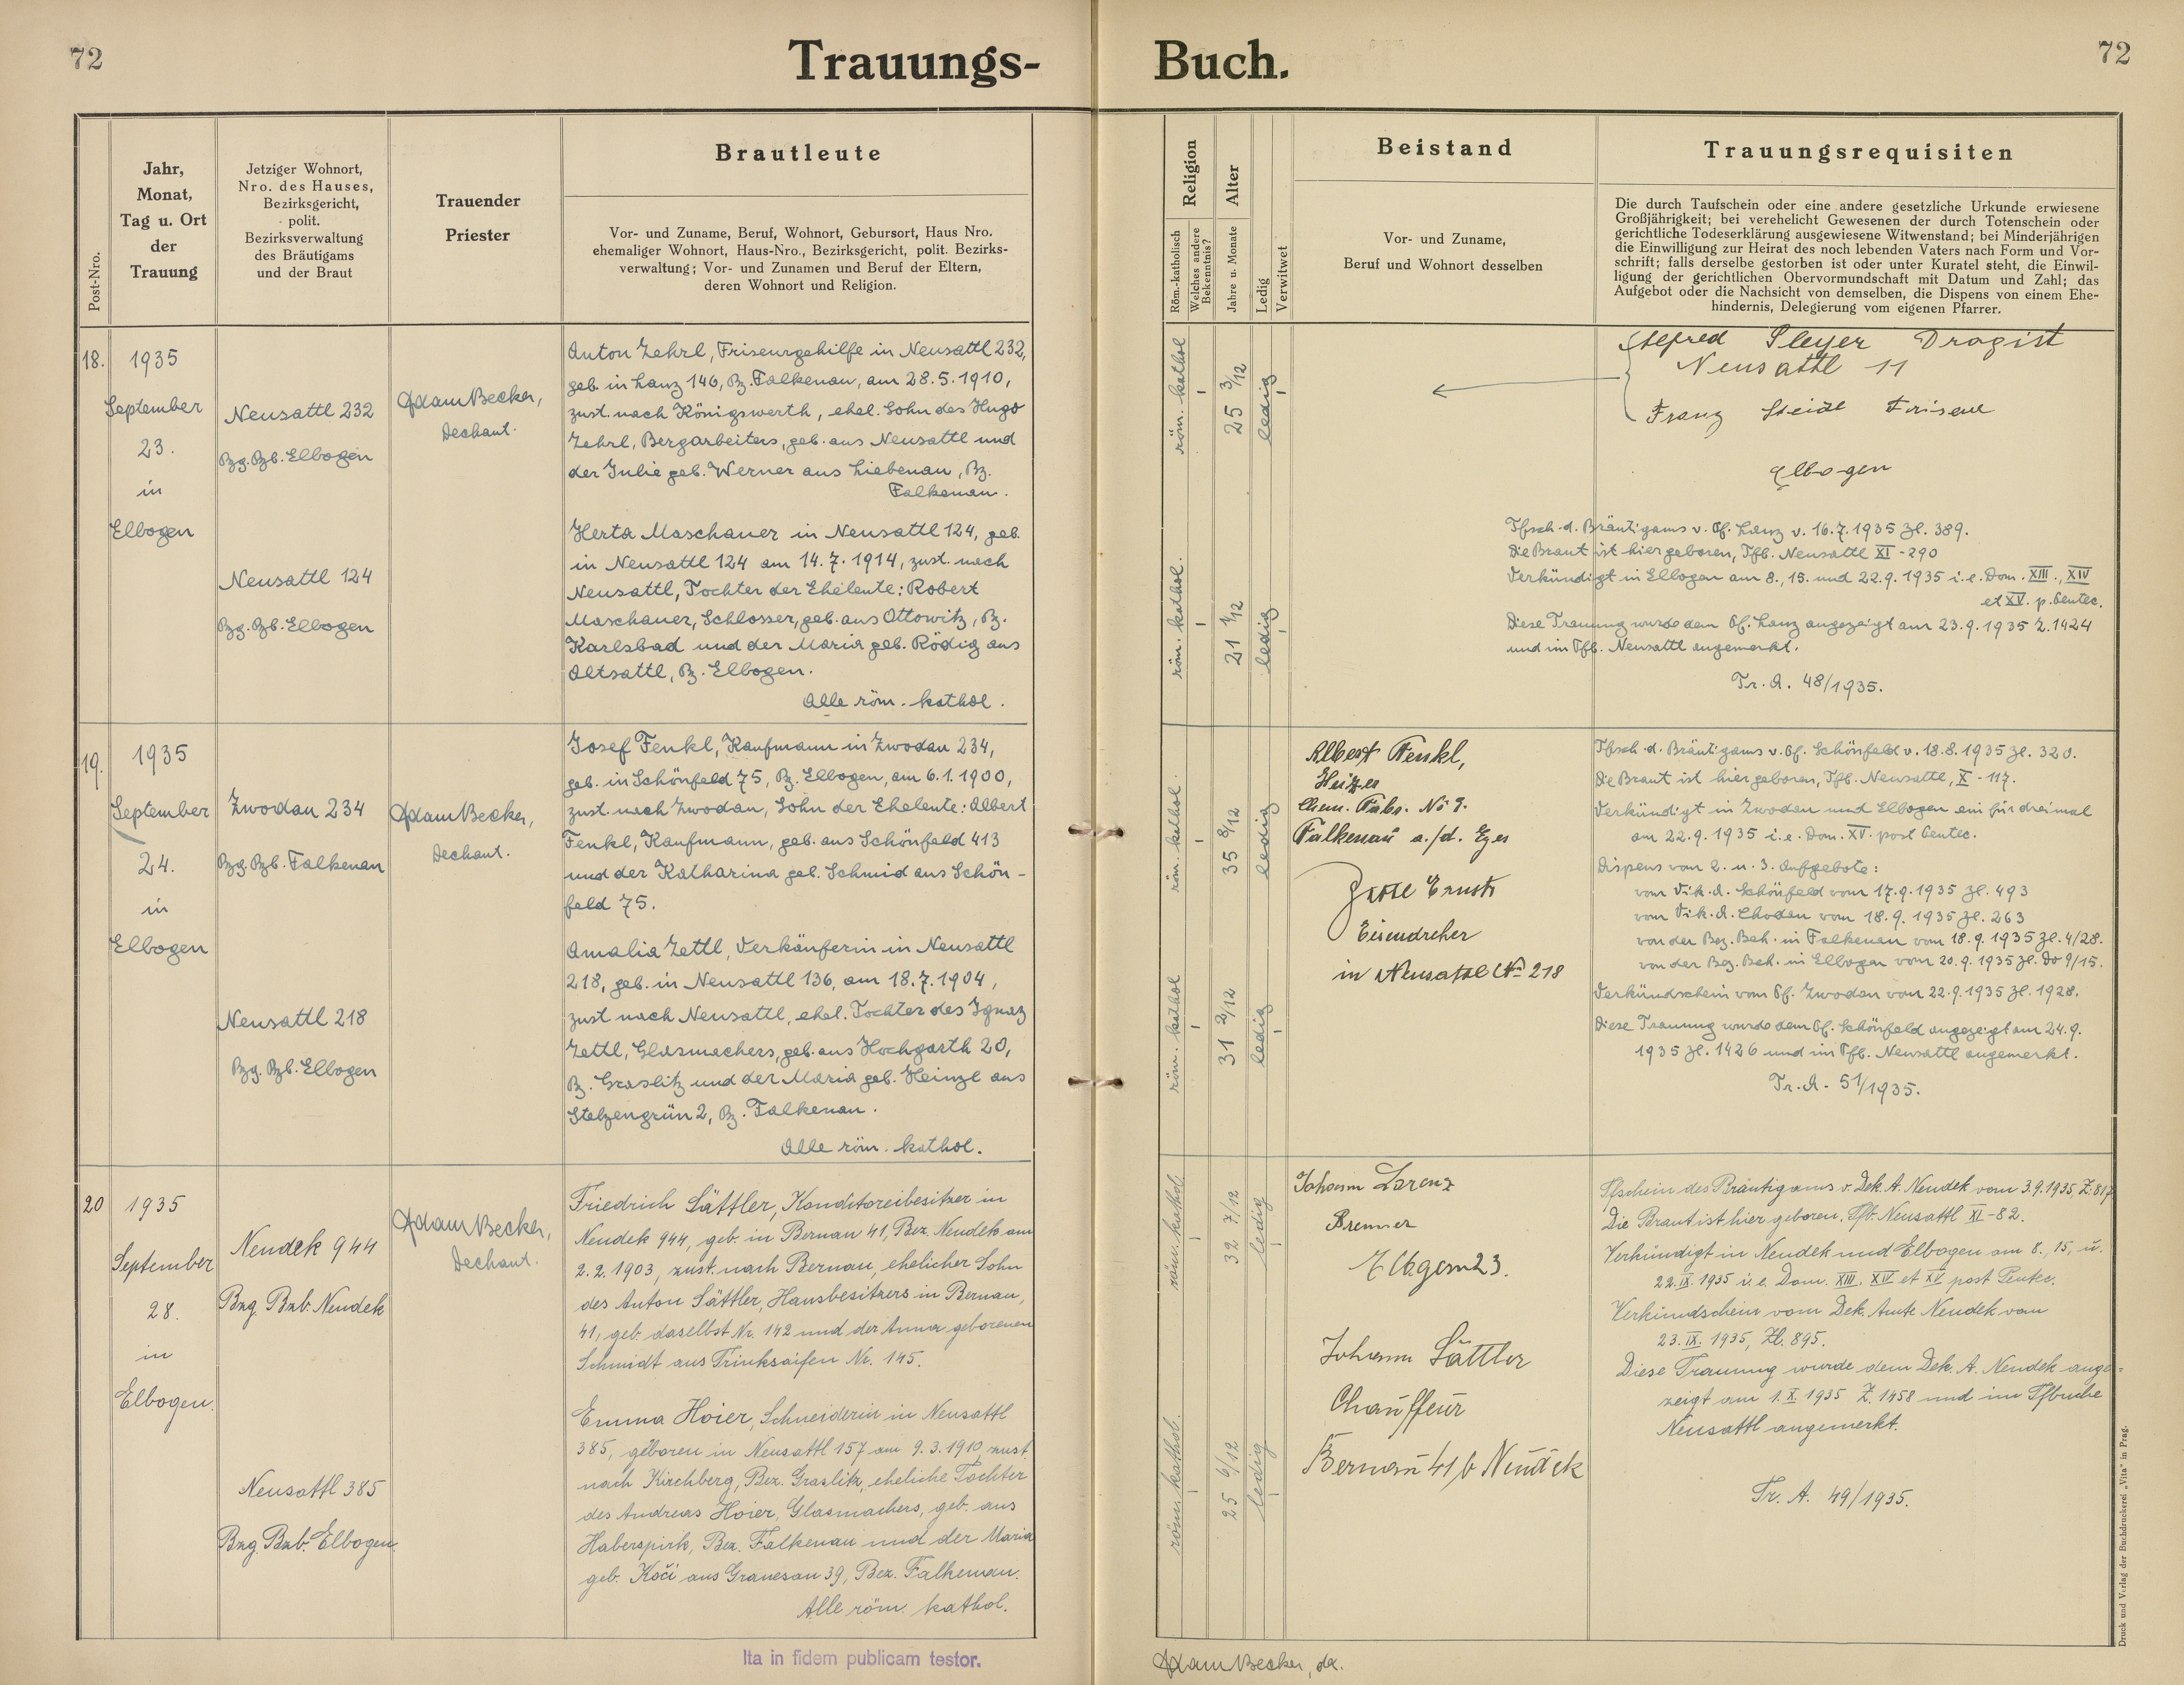 72
Trauungs-
Buch.
72
Post-Nro.
Jahr,
Monat,
Tag u. Ort
der
Trauung
Jetziger Wohnort,
Nro. des Hauses,
Bezirksgericht,
polit.
Bezirksverwaltung
des Bräutigams
und der Braut
Trauender
Priester
Brautleute
Vor- und Zuname, Beruf, Wohnort, Gebursort, Haus Nro.
ehemaliger Wohnort, Haus-Nro., Bezirksgericht, polit. Bezirks-
verwaltung; Vor- und Zunamen und Beruf der Eltern,
deren Wohnort und Religion.
Religion
Röm.-katholisch
Welches andere
Bekenntnis?
Alter
Jahre u. Monate
Ledig
Verwitwet
Beistand
Vor- und Zuname,
Beruf und Wohnort desselben
Trauungsrequisiten
Die durch Taufschein oder eine andere gesetzliche Urkunde erwiesene
Großjährigkeit; bei verehelicht Gewesenen der durch Totenschein oder
gerichtliche Todeserklärung ausgewiesene Witwenstand; bei Minderjährigen
die Einwilligung zur Heirat des noch lebenden Vaters nach Form und Vor-
schrift; falls derselbe gestorben ist oder unter Kuratel steht, die Einwil-
ligung der gerichtlichen Obervormundschaft mit Datum und Zahl; das
Aufgebot oder die Nachsicht von demselben, die Dispens von einem Ehe-
hindernis, Delegierung vom eigenen Pfarrer.
18.
1935
September
23.
in
Elbogen
Neusattl 232
Bzg. Bzb. Elbogen
Neusattl 124
Bzg. Bzb. Elbogen
Adam Becker,
Dechant.
Anton Zehrl, Friseurgehilfe in Neusattl 232,
geb. in Lanz 146, Bz. Falkenau, am 28.5.1910,
zust. nach Königswerth, ehel. Sohn des Hugo
Zehrl, Bergarbeiters, geb. aus Neusattl und
der Julie geb. Werner aus Liebenau, Bz.
Falkenau.
Herta Maschauer in Neusattl 124, geb.
in Neusattl 124 am 14.7.1914, zust. nach
Neusattl, Tochter der Eheleute: Robert
Maschauer, Schlosser, geb. aus Ottowitz, Bz.
Karlsbad und der Maria geb. Rödig aus
Altsattl, Bz. Elbogen.
Alle röm. kathol.
röm. kathol
25 3/12
ledig
röm. kathol.
21 1/12
ledig
Alfred Pleyer Drogist
Neusattl 11
Franz Steidl Friseur
Elbogen
Tfsch. d. Bräutigams v. Pf. Lanz v. 16.7.1935 Zl. 389.
Die Braut ist hier geboren, Tfb. Neusattl XI - 290
Verkündigt in Elbogen am 8., 15. und 22.9.1935 i.e. Dom. XIII., XIV
et XV. p. Pentec.
Diese Trauung wurde dem Pf. Lanz angezeigt am 23.9.1935 Z. 1424
und im Tfb. Neusattl angemerkt.
Tr. A. 48/1935.
19.
1935
September
24.
in
Elbogen
Zwodau 234
Bzg. Bzb. Falkenau
Neusattl 218
Bzg. Bzb. Elbogen
Adam Becker,
Dechant.
Josef Fenkl, Kaufmann in Zwodau 234,
geb. in Schönfeld 75, Bz. Elbogen, am 6.1.1900,
zust. nach Zwodau, Sohn der Eheleute: Albert
Fenkl, Kaufmann, geb. aus Schönfeld 413
und der Katharina geb. Schmid aus Schön-
feld 75.
Amalia Zettl, Verkäuferin in Neusattl
218, geb. in Neusattl 136, am 18.7.1904,
zust. nach Neusattl, ehel. Tochter des Ignaz
Zettl, Glasmachers, geb. aus Hochgarth 20,
Bz. Graslitz und der Maria geb. Heinzl aus
Stelzengrün 2, Bz. Falkenau.
Alle röm. kathol.
röm. kathol.
35 8/12
ledig
röm. kathol
31 2/12
ledig
Albert Fenkl,
Heizer
Chem. Fabr. No 9.
Falkenau a./d. Eger
Zettl Ernst
Eisendreher
in Neusattl No 218
Tfsch. d. Bräutigams v. Pf. Schönfeld v. 18.8.1935 Zl. 320.
Die Braut ist hier geboren, Tfb. Neusattl, X - 117.
Verkündigt in Zwodau und Elbogen ein für dreimal
am 22.9.1935 i.e. Dom. XV. post Pentec.
Dispens vom 2. u. 3. Aufgebote:
vom Vik. A. Schönfeld vom 17.9.1935 Zl. 493
vom Vik. A. Chodau vom 18.9.1935 Zl. 263
von der Bez. Beh. in Falkenau vom 18.9.1935 Zl. 4/28.
von der Bez. Beh. in Elbogen vom 20.9.1935 Zl. Do 9/15.
Verkündschein vom Pf. Zwodau vom 22.9.1935 Zl. 1928.
Diese Trauung wurde dem Pf. Schönfeld angezeigt am 24.9.
1935 Zl. 1426 und im Tfb. Neusattl angemerkt.
Tr. A. 51/1935.
20
1935
September
28.
in
Elbogen.
Neudek 944
Bzg. Bzb. Neudek
Neusattl 385
Bzg. Bzb. Elbogen.
Adam Becker,
Dechant.
Friedrich Sättler, Konditoreibesitzer in
Neudek 944, geb. in Bernau 41, Bez. Neudek am
2.2.1903, zust. nach Bernau, ehelicher Sohn
des Anton Sättler, Hausbesitzers in Bernau,
41, geb. daselbst Nr. 142 und der Anna geborenen
Schmidt aus Trinksaifen Nr. 145.
Emma Hoier, Schneiderin in Neusattl
385, geboren in Neusattl 157 am 9.3.1910, zust.
nach Kirchberg, Bez. Graslitz, eheliche Tochter
des Andreas Hoier, Glasmachers, geb. aus
Haberspirk, Bez. Falkenau und der Maria
geb. Kočí aus Granesau 39, Bez. Falkenau.
Alle röm. kathol.
röm. kathol
32 7/12
ledig
röm. kathol.
25 6/12
ledig
Johann Lorenz
Brenner
Elbogen 23.
Johann Sättler
Chauffeur
Bernau 41 b Neudek
Tfschein des Bräutigams v. Dek. A. Neudek vom 3.9.1935, Z. 817
Die Braut ist hier geboren, Tfb. Neusattl XI - 82.
Verkündigt in Neudek und Elbogen am 8., 15., u.
22.IX.1935 i.e. Dom. XIII, XIV et XV post Pentec.
Verkündschein vom Dek. Amte Neudek vom
23.IX.1935, Zl. 895.
Diese Trauung wurde dem Dek. A. Neudek ange-
zeigt am 1.X.1935 Z. 1458 und im Tfbuche
Neusattl angemerkt.
Tr. A. 49/1935.
Ita in fidem publicam testor.
Adam Becker, de.
Druck und Verlag der Buchdruckerei „Vita" in Prag.